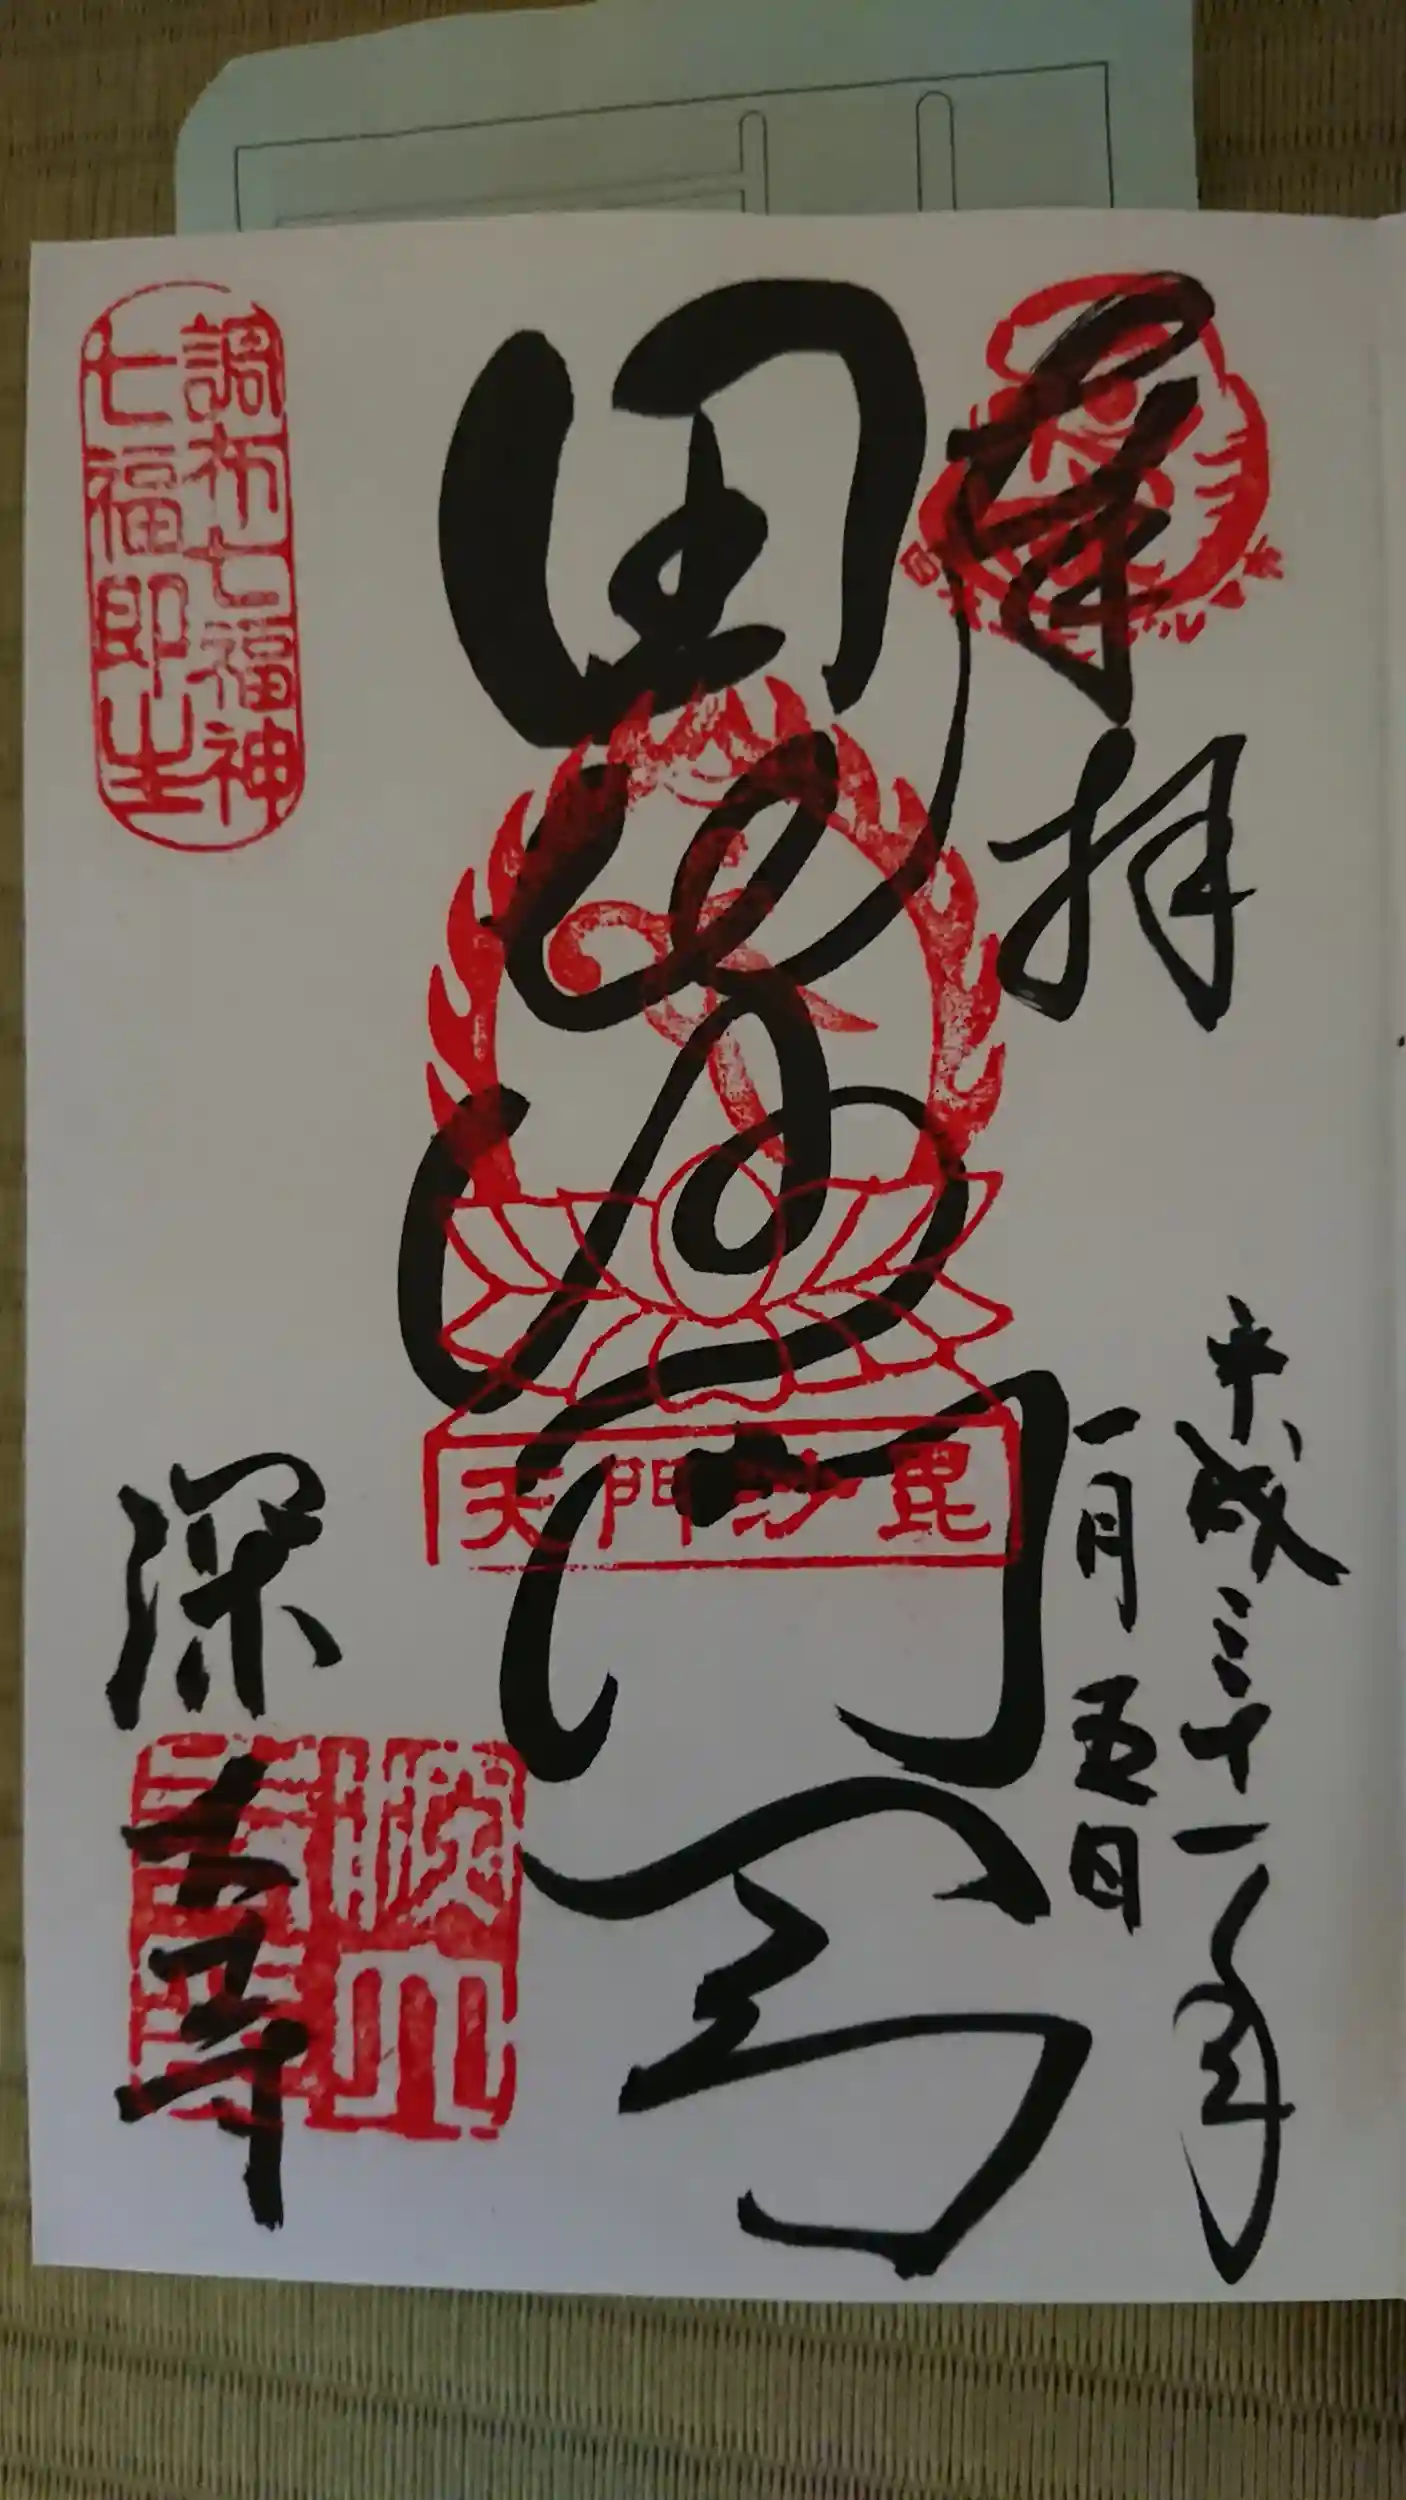 奉拝
平成三十一年
一月五日
毘沙門天
毘沙門天
調布七福神
七福即生
深大寺